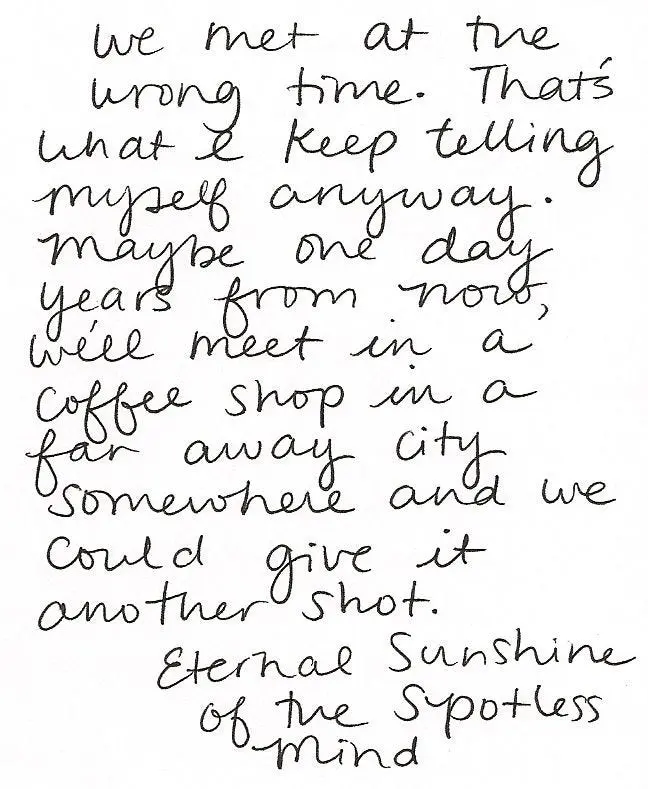 we met at the
wrong time. That's
what I keep telling
myself anyway.
maybe one day
years from now,
we'll meet in a
coffee shop in a
far away city
somewhere and we
could give it
another shot.
Eternal Sunshine
of the Spotless
Mind